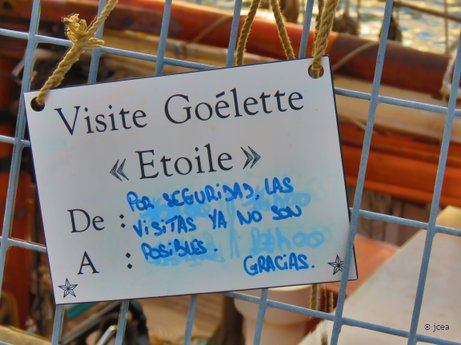 Visite Goélette
« Etoile »
De :
A :
POR SEGURIDAD, LAS
VISITAS YA NO SON
POSIBLES.
GRACIAS.
© jcea